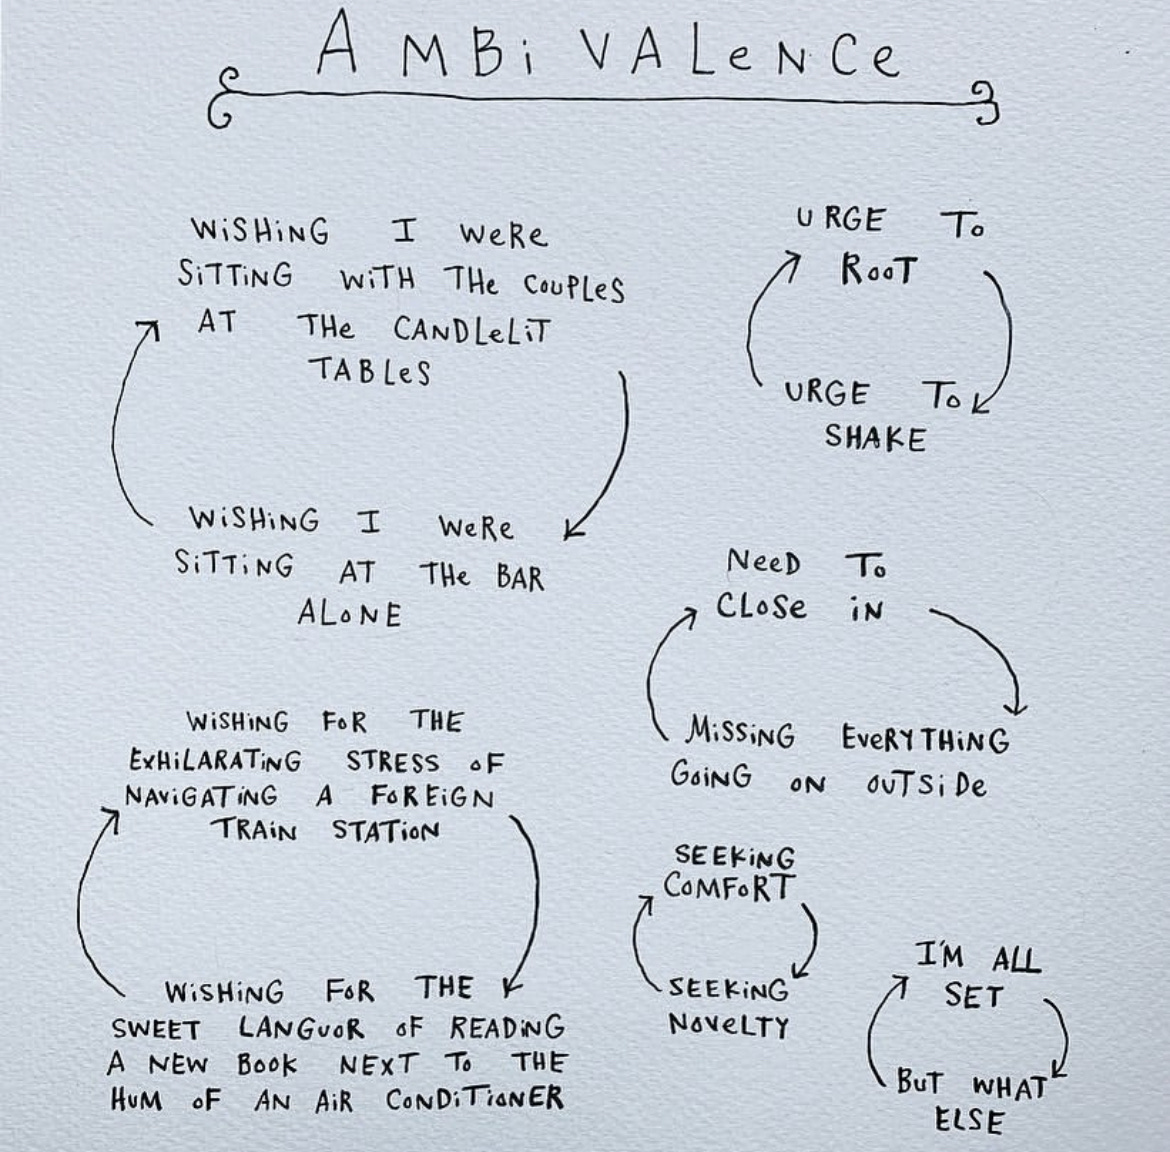 AMBiVALeNCe
WiSHiNG I WeRe
SiTTiNG WiTH THe COUPLeS
AT THe CANDLeLiT
TABLeS
WiSHiNG I WeRe
SiTTiNG AT THe BAR
ALoNE
URGE To
RooT
URGE To
SHAKE
NeeD To
CLoSe iN
MiSSiNG EVeRYTHiNG
GoiNG oN oUTSiDe
WiSHiNG FoR THE
ExHiLARATiNG STRESS oF
NAViGATiNG A FoREiGN
TRAiN STATioN
WiSHiNG FoR THE
SWEET LANGUoR oF READiNG
A NEW Book NEXT To THE
HUM oF AN AiR CoNDiTioNER
SEEKiNG
CoMFoRT
SEEKiNG
NoVeLTY
I'M ALL
SET
BuT WHAT
ELSE